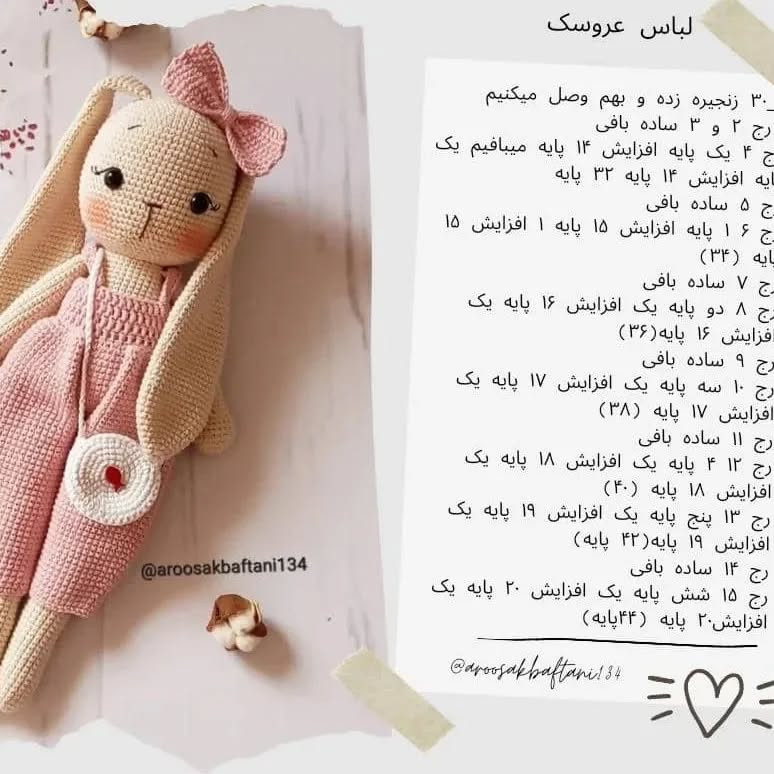 لباس عروسک
_۳۰ زنجیره زده و بهم وصل میکنیم
رج ۲ و ۳ ساده بافی
ج ۴ یک پایه افزایش ۱۴ پایه میبافیم یک
ایه افزایش ۱۴ پایه ۳۲ پایه
ج ۵ ساده بافی
ج ۶ ۱ پایه افزایش ۱۵ پایه ۱ افزایش ۱۵
پایه (۳۴)
رج ۷ ساده بافی
رج ۸ دو پایه یک افزایش ۱۶ پایه یک
افزایش ۱۶ پایه(۳۶)
رج ۹ ساده بافی
رج ۱۰ سه پایه یک افزایش ۱۷ پایه یک
افزایش ۱۷ پایه (۳۸)
رج ۱۱ ساده بافی
رج ۱۲ ۴ پایه یک افزایش ۱۸ پایه یک
افزایش ۱۸ پایه (۴۰)
رج ۱۳ پنج پایه یک افزایش ۱۹ پایه یک
افزایش ۱۹ پایه(۴۲ پایه)
رج ۱۴ ساده بافی
رج ۱۵ شش پایه یک افزایش ۲۰ پایه یک
افزایش۲۰ پایه (۴۴پایه)
@aroosakbaftani134
@aroosakbaftani134